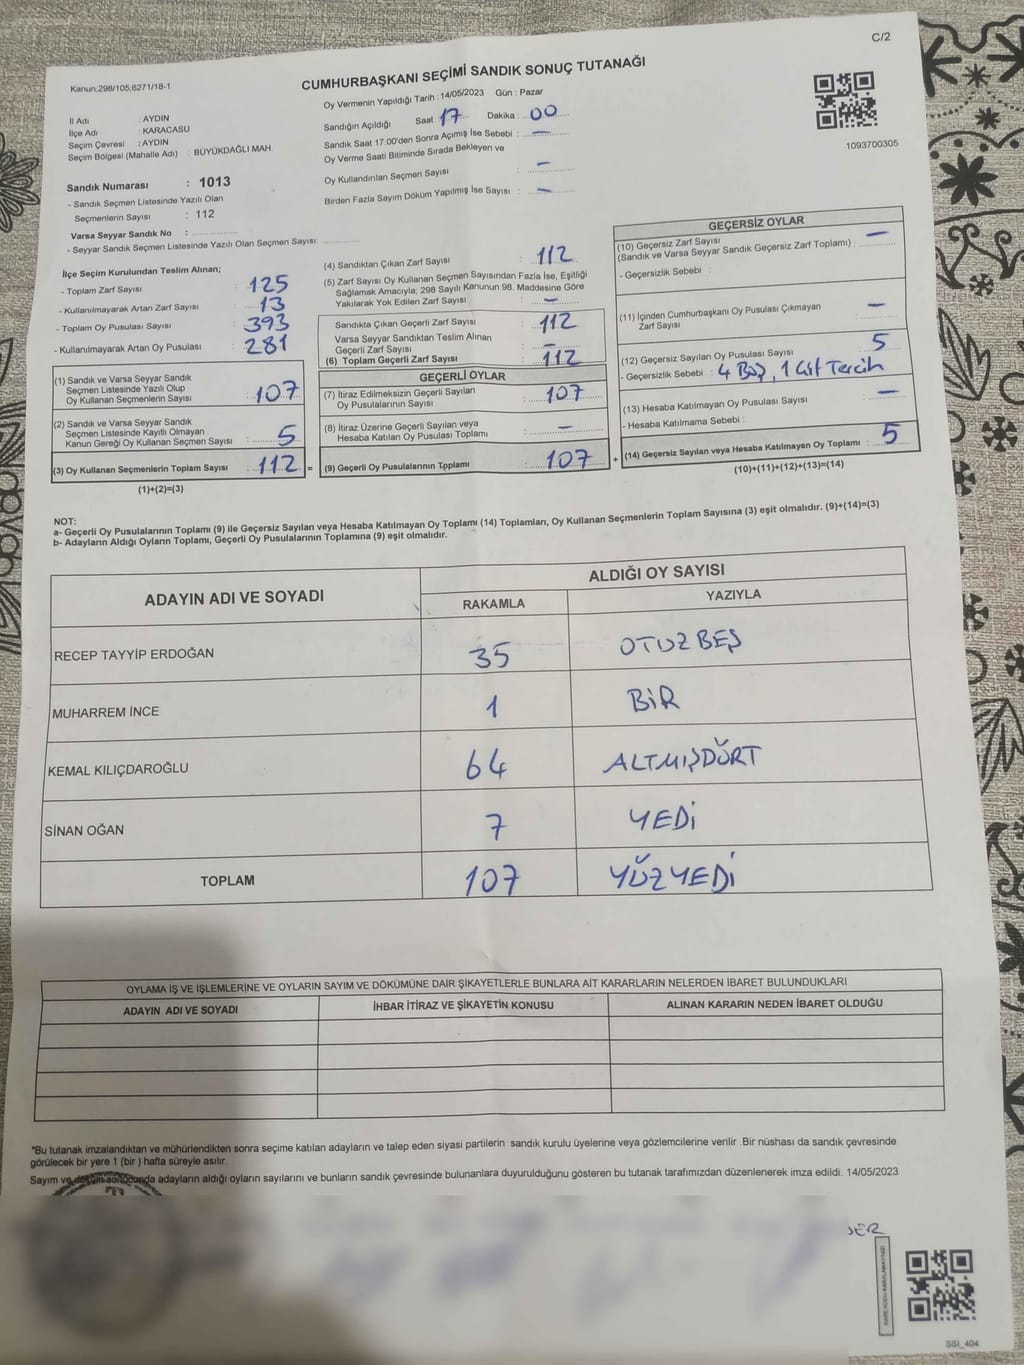 C/2
Kanun;298/105;6271/18-1
CUMHURBAŞKANI SEÇİMİ SANDIK SONUÇ TUTANAĞI
İl Adı : AYDIN
İlçe Adı : KARACASU
Seçim Çevresi : AYDIN
Seçim Bölgesi (Mahalle Adı) : BÜYÜKDAĞLI MAH.
Oy Vermenin Yapıldığı Tarih : 14/05/2023 Gün : Pazar
Sandığın Açıldığı Saat 17 Dakika : 00
Sandık Saat 17:00'den Sonra Açımış İse Sebebi : —
Oy Verme Saati Bitiminde Sırada Bekleyen ve
Oy Kullandırılan Seçmen Sayısı : —
Birden Fazla Sayım Döküm Yapılmış İse Sayısı : —
1093700305
Sandık Numarası : 1013
- Sandık Seçmen Listesinde Yazılı Olan
Seçmenlerin Sayısı : 112
Varsa Seyyar Sandık No :
- Seyyar Sandık Seçmen Listesinde Yazılı Olan Seçmen Sayısı:
İlçe Seçim Kurulundan Teslim Alınan;
- Toplam Zarf Sayısı : 125
- Kullanılmayarak Artan Zarf Sayısı : 13
- Toplam Oy Pusulası Sayısı : 393
- Kullanılmayarak Artan Oy Pusulası : 281
(1) Sandık ve Varsa Seyyar Sandık
Seçmen Listesinde Yazılı Olup
Oy Kullanan Seçmenlerin Sayısı : 107
(2) Sandık ve Varsa Seyyar Sandık
Seçmen Listesinde Kayıtlı Olmayan
Kanun Gereği Oy Kullanan Seçmen Sayısı : 5
(3) Oy Kullanan Seçmenlerin Toplam Sayısı : 112 =
(1)+(2)=(3)
(4) Sandıktan Çıkan Zarf Sayısı : 112
(5) Zarf Sayısı Oy Kullanan Seçmen Sayısından Fazla İse, Eşitliği
Sağlamak Amacıyla; 298 Sayılı Kanunun 98. Maddesine Göre
Yakılarak Yok Edilen Zarf Sayısı : —
Sandıkta Çıkan Geçerli Zarf Sayısı : 112
Varsa Seyyar Sandıktan Teslim Alınan
Geçerli Zarf Sayısı : —
(6) Toplam Geçerli Zarf Sayısı : 112
GEÇERLİ OYLAR
(7) İtiraz Edilmeksizin Geçerli Sayılan
Oy Pusulalarının Sayısı : 107
(8) İtiraz Üzerine Geçerli Sayılan veya
Hesaba Katılan Oy Pusulası Toplamı : —
(9) Geçerli Oy Pusulalarının Toplamı : 107 +
GEÇERSİZ OYLAR
(10) Geçersiz Zarf Sayısı
(Sandık ve Varsa Seyyar Sandık Geçersiz Zarf Toplamı) : —
- Geçersizlik Sebebi :
(11) İçinden Cumhurbaşkanı Oy Pusulası Çıkmayan
Zarf Sayısı : —
(12) Geçersiz Sayılan Oy Pusulası Sayısı : 5
- Geçersizlik Sebebi : 4 Boş, 1 Çift Tercih
(13) Hesaba Katılmayan Oy Pusulası Sayısı : —
- Hesaba Katılmama Sebebi :
(14) Geçersiz Sayılan veya Hesaba Katılmayan Oy Toplamı : 5
(10)+(11)+(12)+(13)=(14)
NOT:
a- Geçerli Oy Pusulalarının Toplamı (9) ile Geçersiz Sayılan veya Hesaba Katılmayan Oy Toplamı (14) Toplamları, Oy Kullanan Seçmenlerin Toplam Sayısına (3) eşit olmalıdır. (9)+(14)=(3)
b- Adayların Aldığı Oyların Toplamı, Geçerli Oy Pusulalarının Toplamına (9) eşit olmalıdır.
ADAYIN ADI VE SOYADI ALDIĞI OY SAYISI
RAKAMLA YAZIYLA
RECEP TAYYİP ERDOĞAN 35 OTUZBEŞ
MUHARREM İNCE 1 BİR
KEMAL KILIÇDAROĞLU 64 ALTMIŞDÖRT
SİNAN OĞAN 7 YEDİ
TOPLAM 107 YÜZYEDİ
OYLAMA İŞ VE İŞLEMLERİNE VE OYLARIN SAYIM VE DÖKÜMÜNE DAİR ŞİKAYETLERLE BUNLARA AİT KARARLARIN NELERDEN İBARET BULUNDUKLARI
ADAYIN ADI VE SOYADI İHBAR İTİRAZ VE ŞİKAYETİN KONUSU ALINAN KARARIN NEDEN İBARET OLDUĞU
*Bu tutanak imzalandıktan ve mühürlendikten sonra seçime katılan adayların ve talep eden siyasi partilerin sandık kurulu üyelerine veya gözlemcilerine verilir .Bir nüshası da sandık çevresinde
görülecek bir yere 1 (bir ) hafta süreyle asılır.
Sayım ve döküm sonucunda adayların aldığı oyların sayılarını ve bunların sandık çevresinde bulunanlara duyurulduğunu gösteren bu tutanak tarafımızdan düzenlenerek imza edildi. 14/05/2023
SSI_404